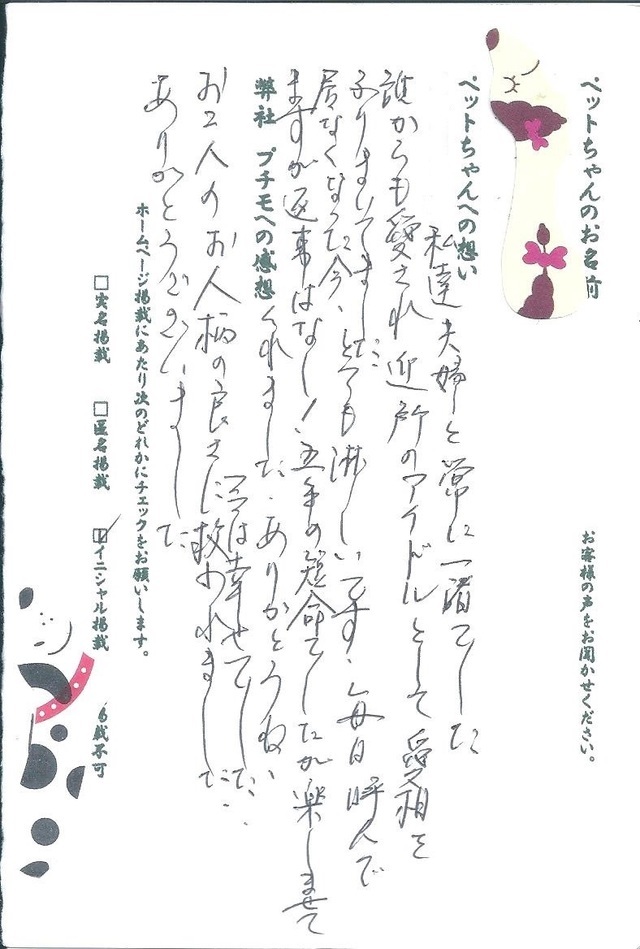 ペットちゃんのお名前
お客様の声をお聞かせください。
ペットちゃんへの想い
私達夫婦と常に一諸でした
誰からも愛され近所のアイドルとして愛相を
ふりまいてました。
居なくなった今、とても淋しいです。毎日呼んで
ますが返事はなし!五年の短命でしたが楽しませて
くれました。ありがとうね。
弊社 プチモへの感想
は幸せでした。
お二人のお人柄の良さに救われました。
ありがとうございました
ホームページ掲載にあたり次のどれかにチェックをお願いします。
□実名掲載 □匿名掲載 □イニシャル掲載 掲載不可